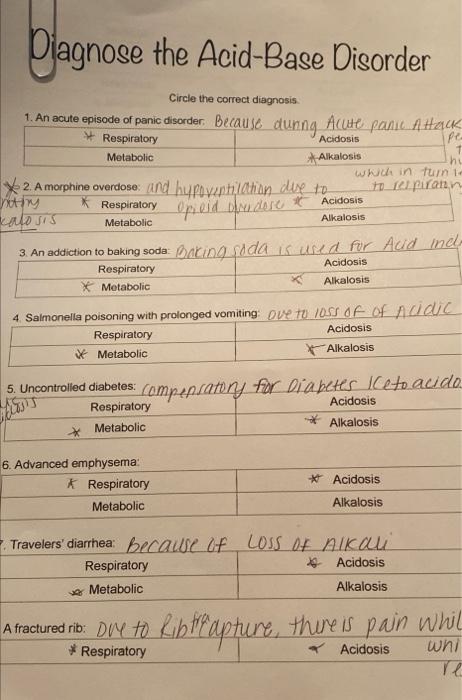 Diagnose the Acid-Base Disorder
Circle the correct diagnosis.
1. An acute episode of panic disorder: Because during Acute panic Attack
* Respiratory Acidosis
Metabolic * Alkalosis
which in turn
* 2. A morphine overdose: and hypoventilation due to
* Respiratory opioid overdose * Acidosis
Metabolic Alkalosis
3. An addiction to baking soda: Baking soda is used for Acid
Respiratory Acidosis
* Metabolic * Alkalosis
4. Salmonella poisoning with prolonged vomiting: Due to loss of of Acidic
Respiratory Acidosis
* Metabolic * Alkalosis
5. Uncontrolled diabetes: Compensatory for Diabetes Ketoacido
Respiratory Acidosis
* Metabolic * Alkalosis
6. Advanced emphysema:
* Respiratory * Acidosis
Metabolic Alkalosis
. Travelers' diarrhea: Because of Loss of Alkali
Respiratory * Acidosis
* Metabolic Alkalosis
A fractured rib: Due to Rib there is pain whil
* Respiratory * Acidosis whi
re